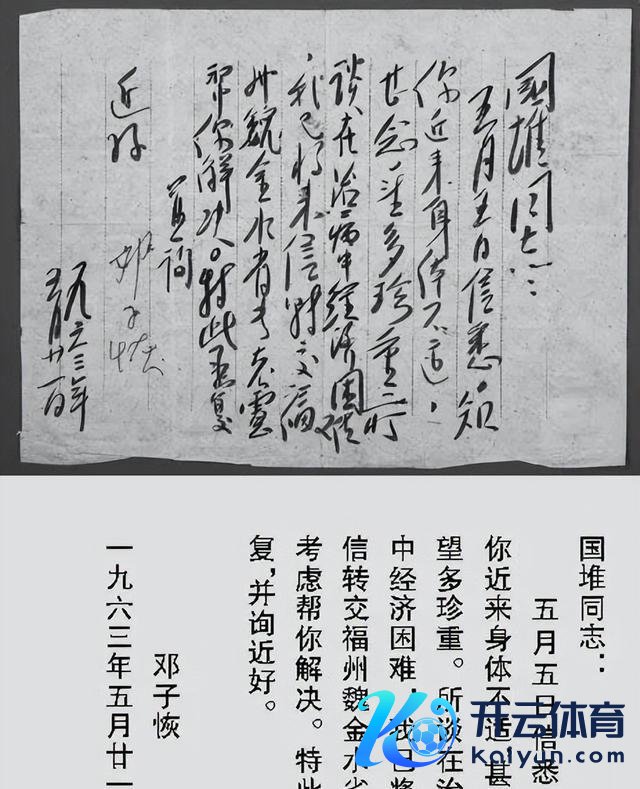 國堆同志：
五月五日信悉。知
你近来身体不适，
甚念。望多珍重。所
谈在治病中经济困难
，我已将来信转交福
州魏金水省长考虑
帮你解决。特此函复
并询
近好
邓子恢
一九六三年
五月廿一日
国堆同志：
五月五日信悉
你近来身体不适甚
望多珍重。所谈在治
中经济困难，我已将
信转交福州魏金水省
考虑帮你解决。特此
复，并询近好。
邓子恢
一九六三年五月廿一
开云体育
kaiyun.com